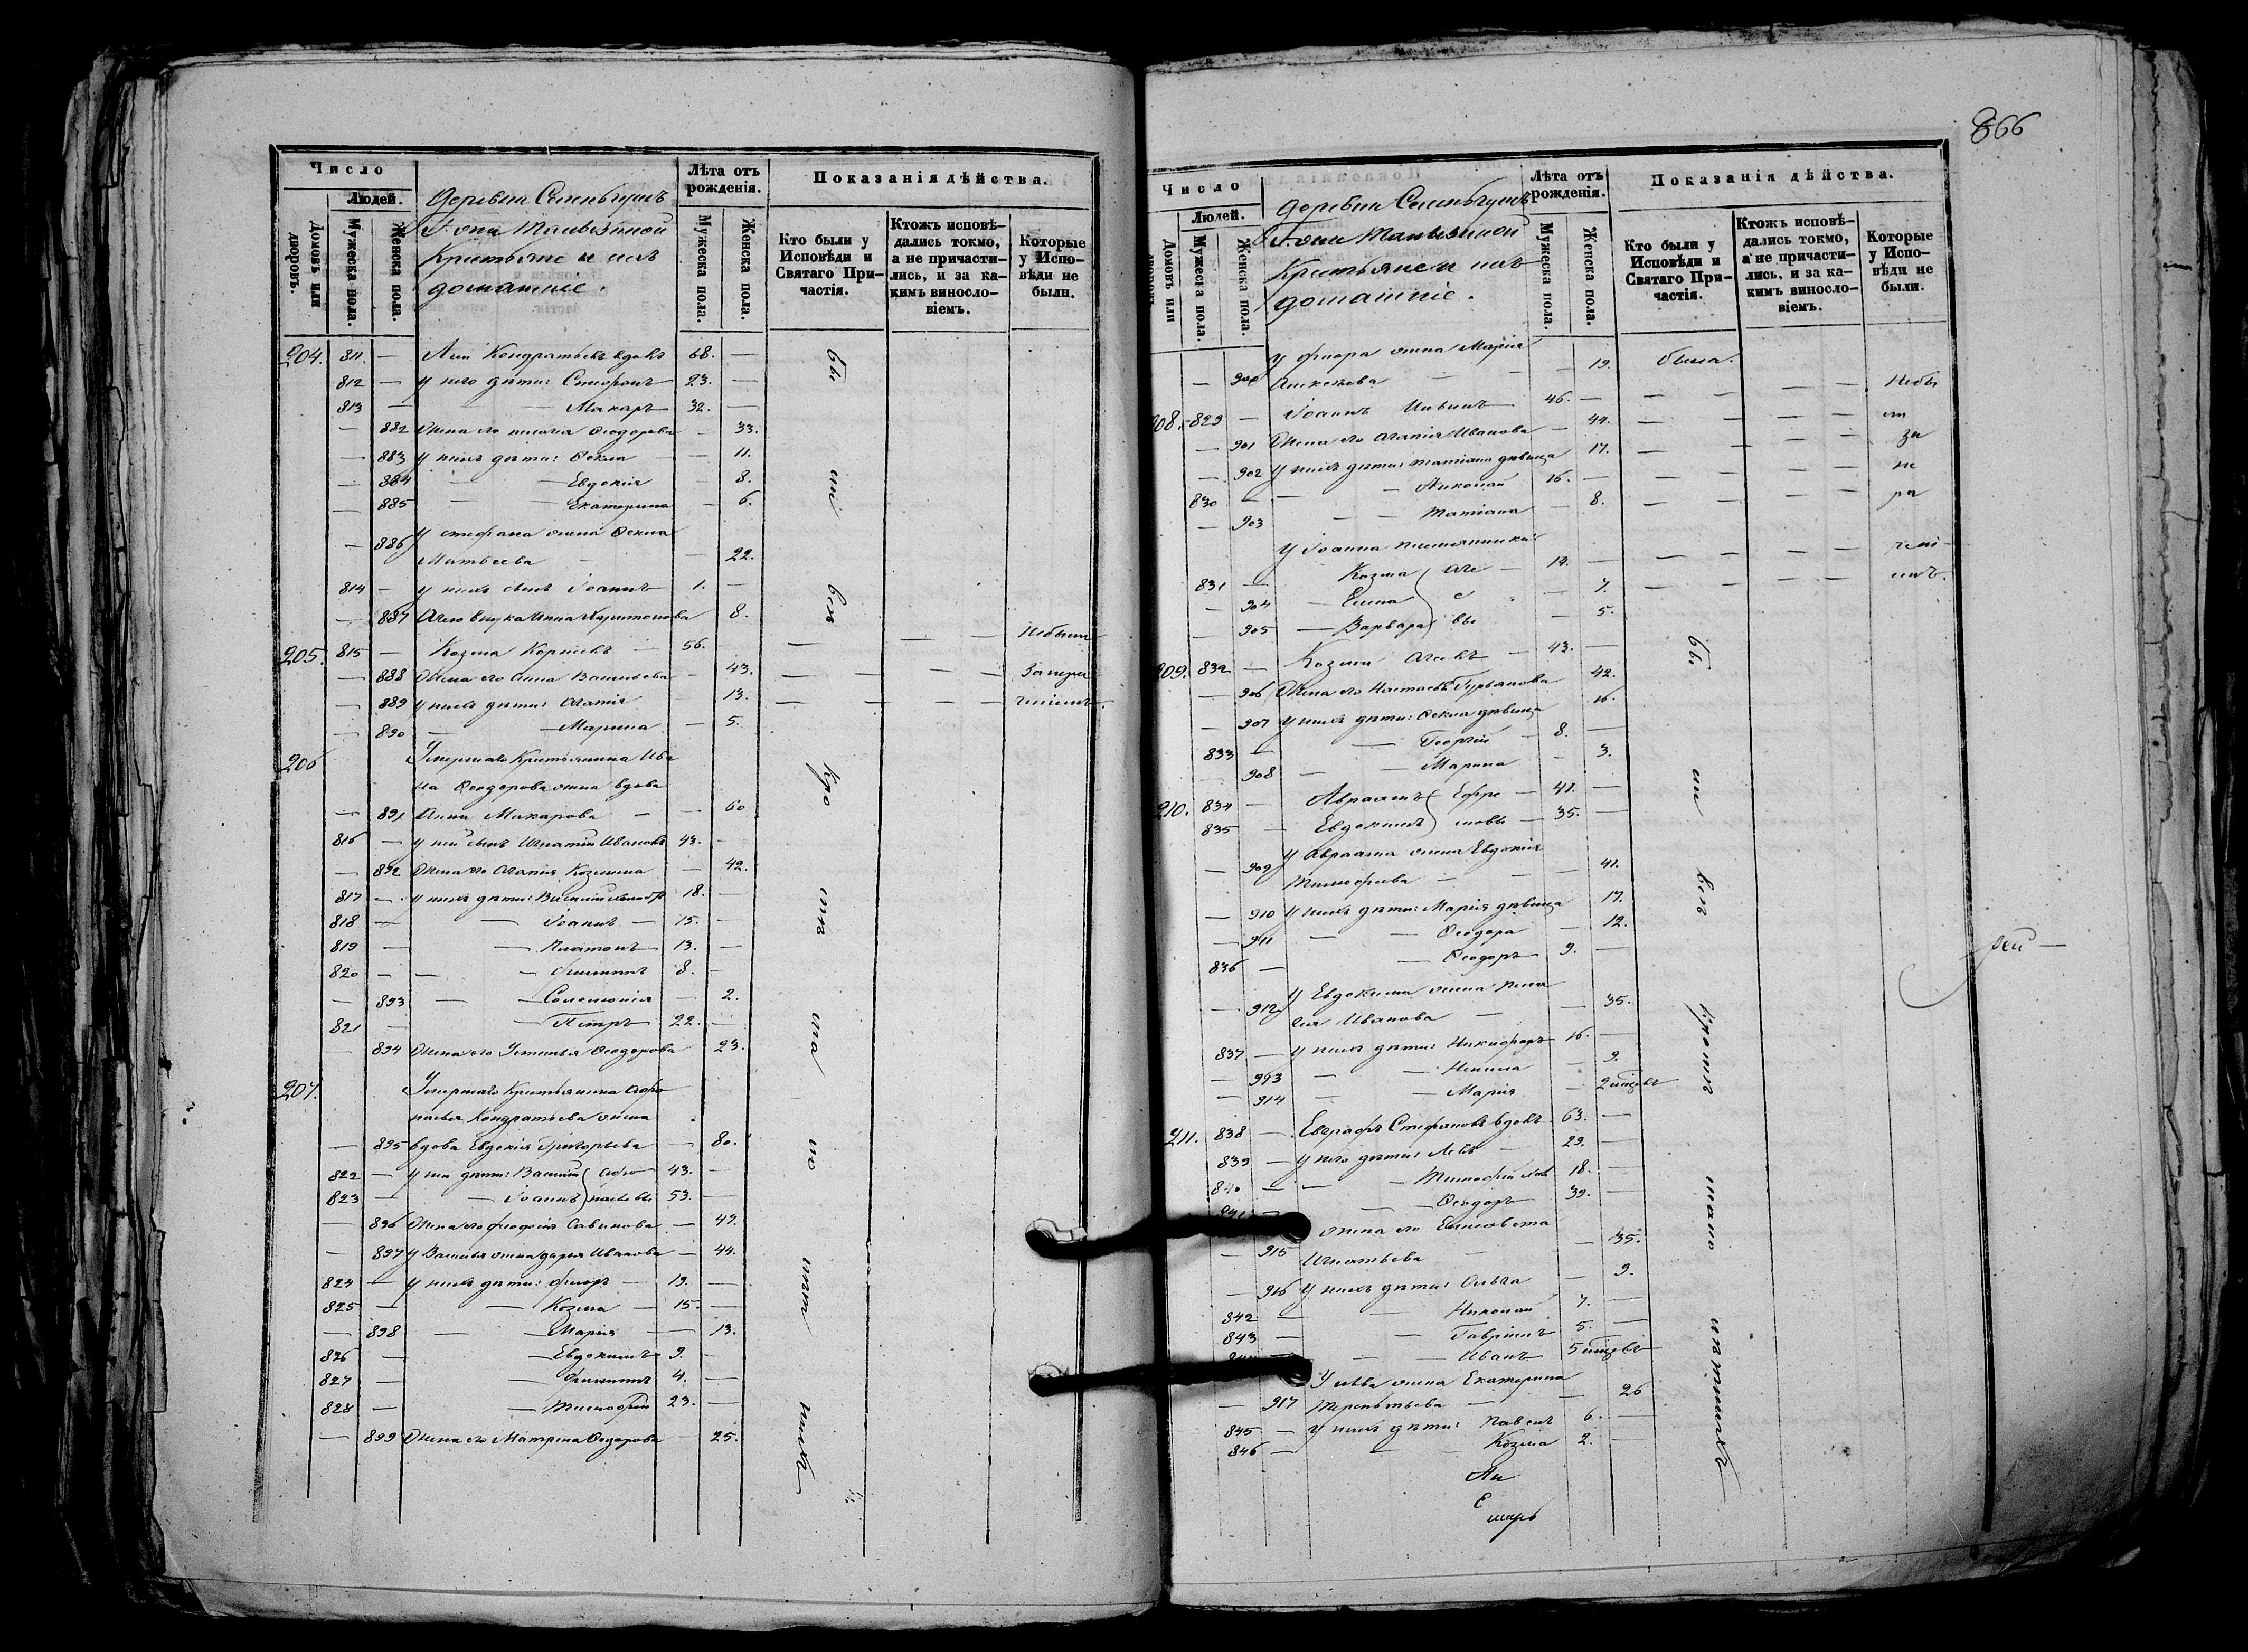 Число
Людей.
Домовъ или дворовъ.
Мужеска пола.
Женска пола.
Деревни
Г-жи
Крестьяне и ихъ
домашніе.
Лѣта отъ рожденія.
Мужеска пола.
Женска пола.
Показанія дѣйства.
Кто были у Исповѣди и Святаго При-частія.
Ктожъ исповѣ-дались токмо, а не причасти-лись, и за ка-кимъ винословіемъ.
Которые у Испо-вѣди не были.
204. 811. — Кондратьевъ вдовъ 68. —
812 — у него дѣти: Стефанъ 23. —
813 — — Макаръ 32. —
— 882 Жена его Пелагія Ѳеодорова — 33.
— 883 у нихъ дѣти: Ѳекла — 11.
— 884 — Евдокія — 8.
— 885 — Екатерина — 6.
— 886 у Стефана жена Ѳекла
Матвеева — 22.
814 — у нихъ сынъ Іоаннъ 1. —
— 887 внука Анна Харитонова 8.
205. 815 — Козма 56. — — — — Небыли
— 888 Жена его Анна Васильева — 43. — — — За нера
— 889 у нихъ дѣти: Агапія — 13. — — — ченіемъ.
— 890 — Марина — 5.
206 Умершаго Крестьянина Ива
на Ѳеодорова жена вдова
— 891 Анна Макарова — — 60
816 — у ней сынъ Игнатій Ивановъ 43. —
— 892 Жена его Агапія Козмина — 42.
817 — у нихъ дѣти: Василій 18. —
818 — — Іоаннъ — 15. —
819 — — Платонъ 13. —
820 — — Филиппъ 8. —
— 893 — Соломонія — 2.
821 — — Петръ 22. —
— 894 Жена его Устинья Ѳеодорова 23.
207. Умершаго Крестьянина Афо
насья Кондратьева жена
— 895 вдова Евдокія Григорьева — 80.
822 — у нея дѣти: Василій Афо 43. —
823 — — Іоаннъ насьевы 53. —
— 896 Жена его Феодосія Савинова — 47.
— 897 у Василья жена Дарья Иванова — 44.
824 — у нихъ дѣти: Флоръ — 19. —
825 — — Козма — 15. —
— 898 — Марія — 13.
826 — — Евдокимъ 9. —
827 — — Филиппъ 4. —
828 — — Тимофей 23. —
— 899 Жена его Матрена Ѳедорова — 25.
бы
ли
всѣ
кро
мѣ
ма
ло
лѣт
нихъ
866
Число
Людей.
Домовъ или дворовъ.
Мужеска пола.
Женска пола.
Деревни
Г-жи
Крестьяне и ихъ
домашніе.
Лѣта отъ рожденія.
Мужеска пола.
Женска пола.
Показанія дѣйства.
Кто были у Исповѣди и Святаго При-частія.
Ктожъ исповѣ-дались токмо, а не причасти-лись, и за ка-кимъ винословіемъ.
Которые у Испо-вѣди не были.
у Флора жена Марія
— 900 — — 19. была.
208. 829 — Іоаннъ 46. — — — — небы
— 901 Жена его Агапія Иванова — 44. — — — ли
— 902 у нихъ дѣти: Татіана дѣвица 17. — — — за
830 — — Николай 16. — — — — не
— 903 — Татіана — 8. — — — ра
у Іоанна племянники
831 — Козма 14. — — — — чені
— 904 — Елена — 7. — — — емъ.
— 905 — Варвара — 5.
209. 832 — Козма 43. —
— 906 Жена его Настасья Гурьянова 42.
— 907 у нихъ дѣти: Ѳекла дѣвица 16.
833 — — Георгій — 8. —
— 908 — Марина — 3.
210. 834 — Авраамъ Ефре — 41. —
835 — Евдокимъ мовы — 35. —
— 909 у Авраама жена Евдокія
Тимофеева — — 41.
— 910 у нихъ дѣти: Марія дѣвица 17.
— 911 — Ѳеодора — 12.
836 — — Ѳеодоръ — 9. —
— 912 у Евдокима жена Пела
гія Иванова — — 35.
837 — у нихъ дѣти: Никифоръ 16. —
— 913 — Ненила — 9.
— 914 — Марія — 2 мѣсяц
211. 838 — Евграфъ Стефановъ вдовъ 63. —
839 — у него дѣти: Левъ — 29. —
840 — — Тимофей 18. —
841 — — Ѳеодоръ 39. —
— 915 жена его Елисавета
Игнатьева — — 35.
— 916 у нихъ дѣти: Ольга — 9.
842 — — Николай 7. —
843 — — Гавріилъ 5. —
— — Иванъ 5 мѣсяц
— 917 у Льва жена Екатерина
Терентьева — — 26
845 — у нихъ дѣти: Павелъ 6. —
846 — — Козма 2. —
бы
ли
всѣ
кромѣ
мало
лѣтнихъ
рей —